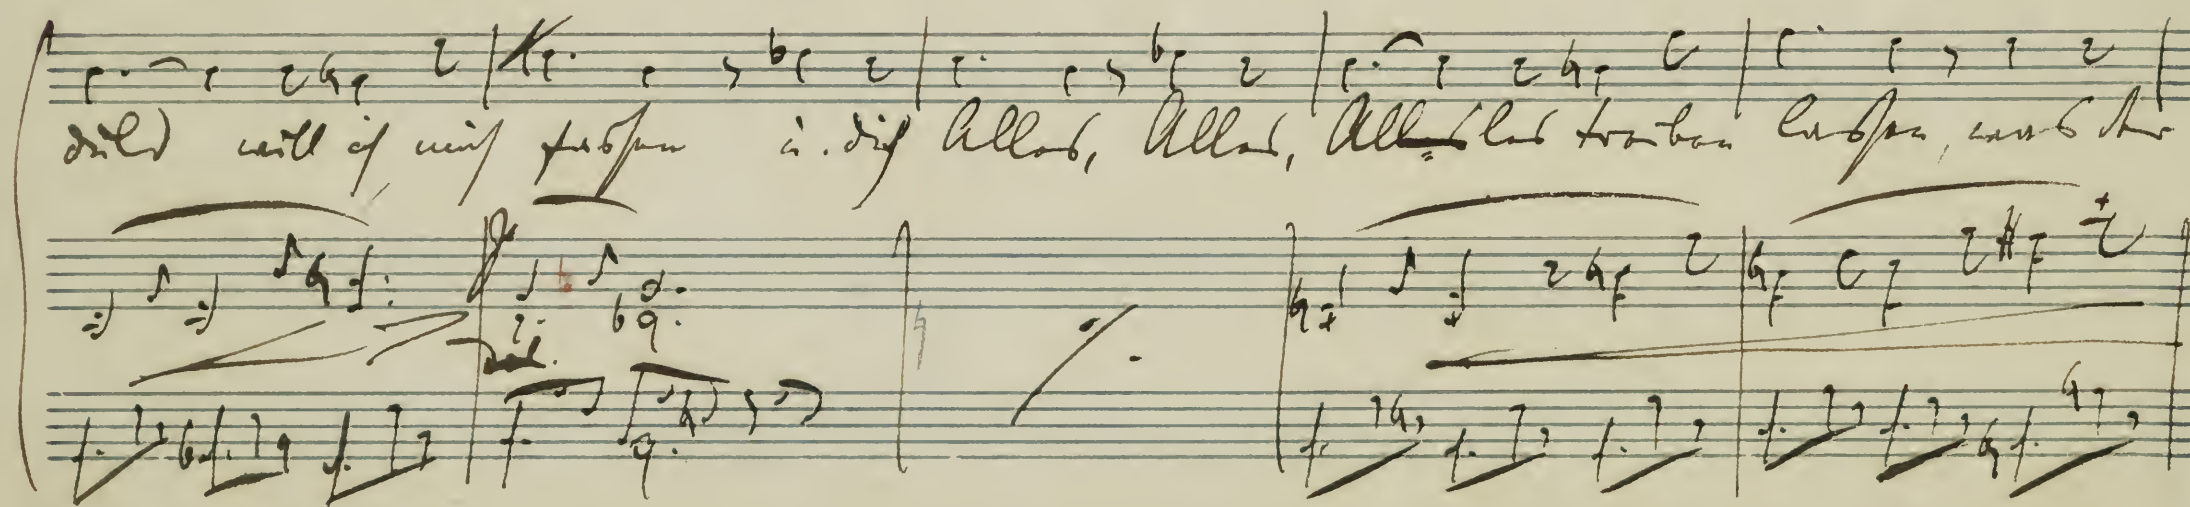 duld will ich mich fassen u. dich Alles, Alles, Alles treiben lassen, was Dir